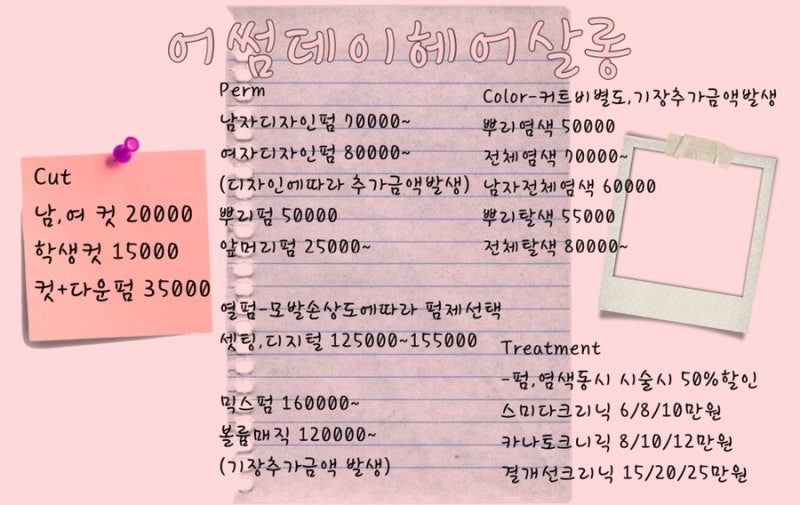 어썸데이헤어살롱
Cut
남,여 컷 20000
학생컷 15000
컷+다운펌 35000
Perm
남자디자인펌 70000~
여자디자인펌 80000~
(디자인에따라 추가금액발생)
뿌리펌 50000
앞머리펌 25000~
열펌-모발손상도에따라 펌제선택
셋팅,디지털 125000~155000
믹스펌 160000~
볼륨매직 120000~
(기장추가금액 발생)
Color-커트비별도,기장추가금액발생
뿌리염색 50000
전체염색 70000~
남자전체염색 60000
뿌리탈색 55000
전체탈색 80000~
Treatment
-펌,염색동시 시술시 50%할인
스미다크리닉 6/8/10만원
카나토크니릭 8/10/12만원
결개선크리닉 15/20/25만원